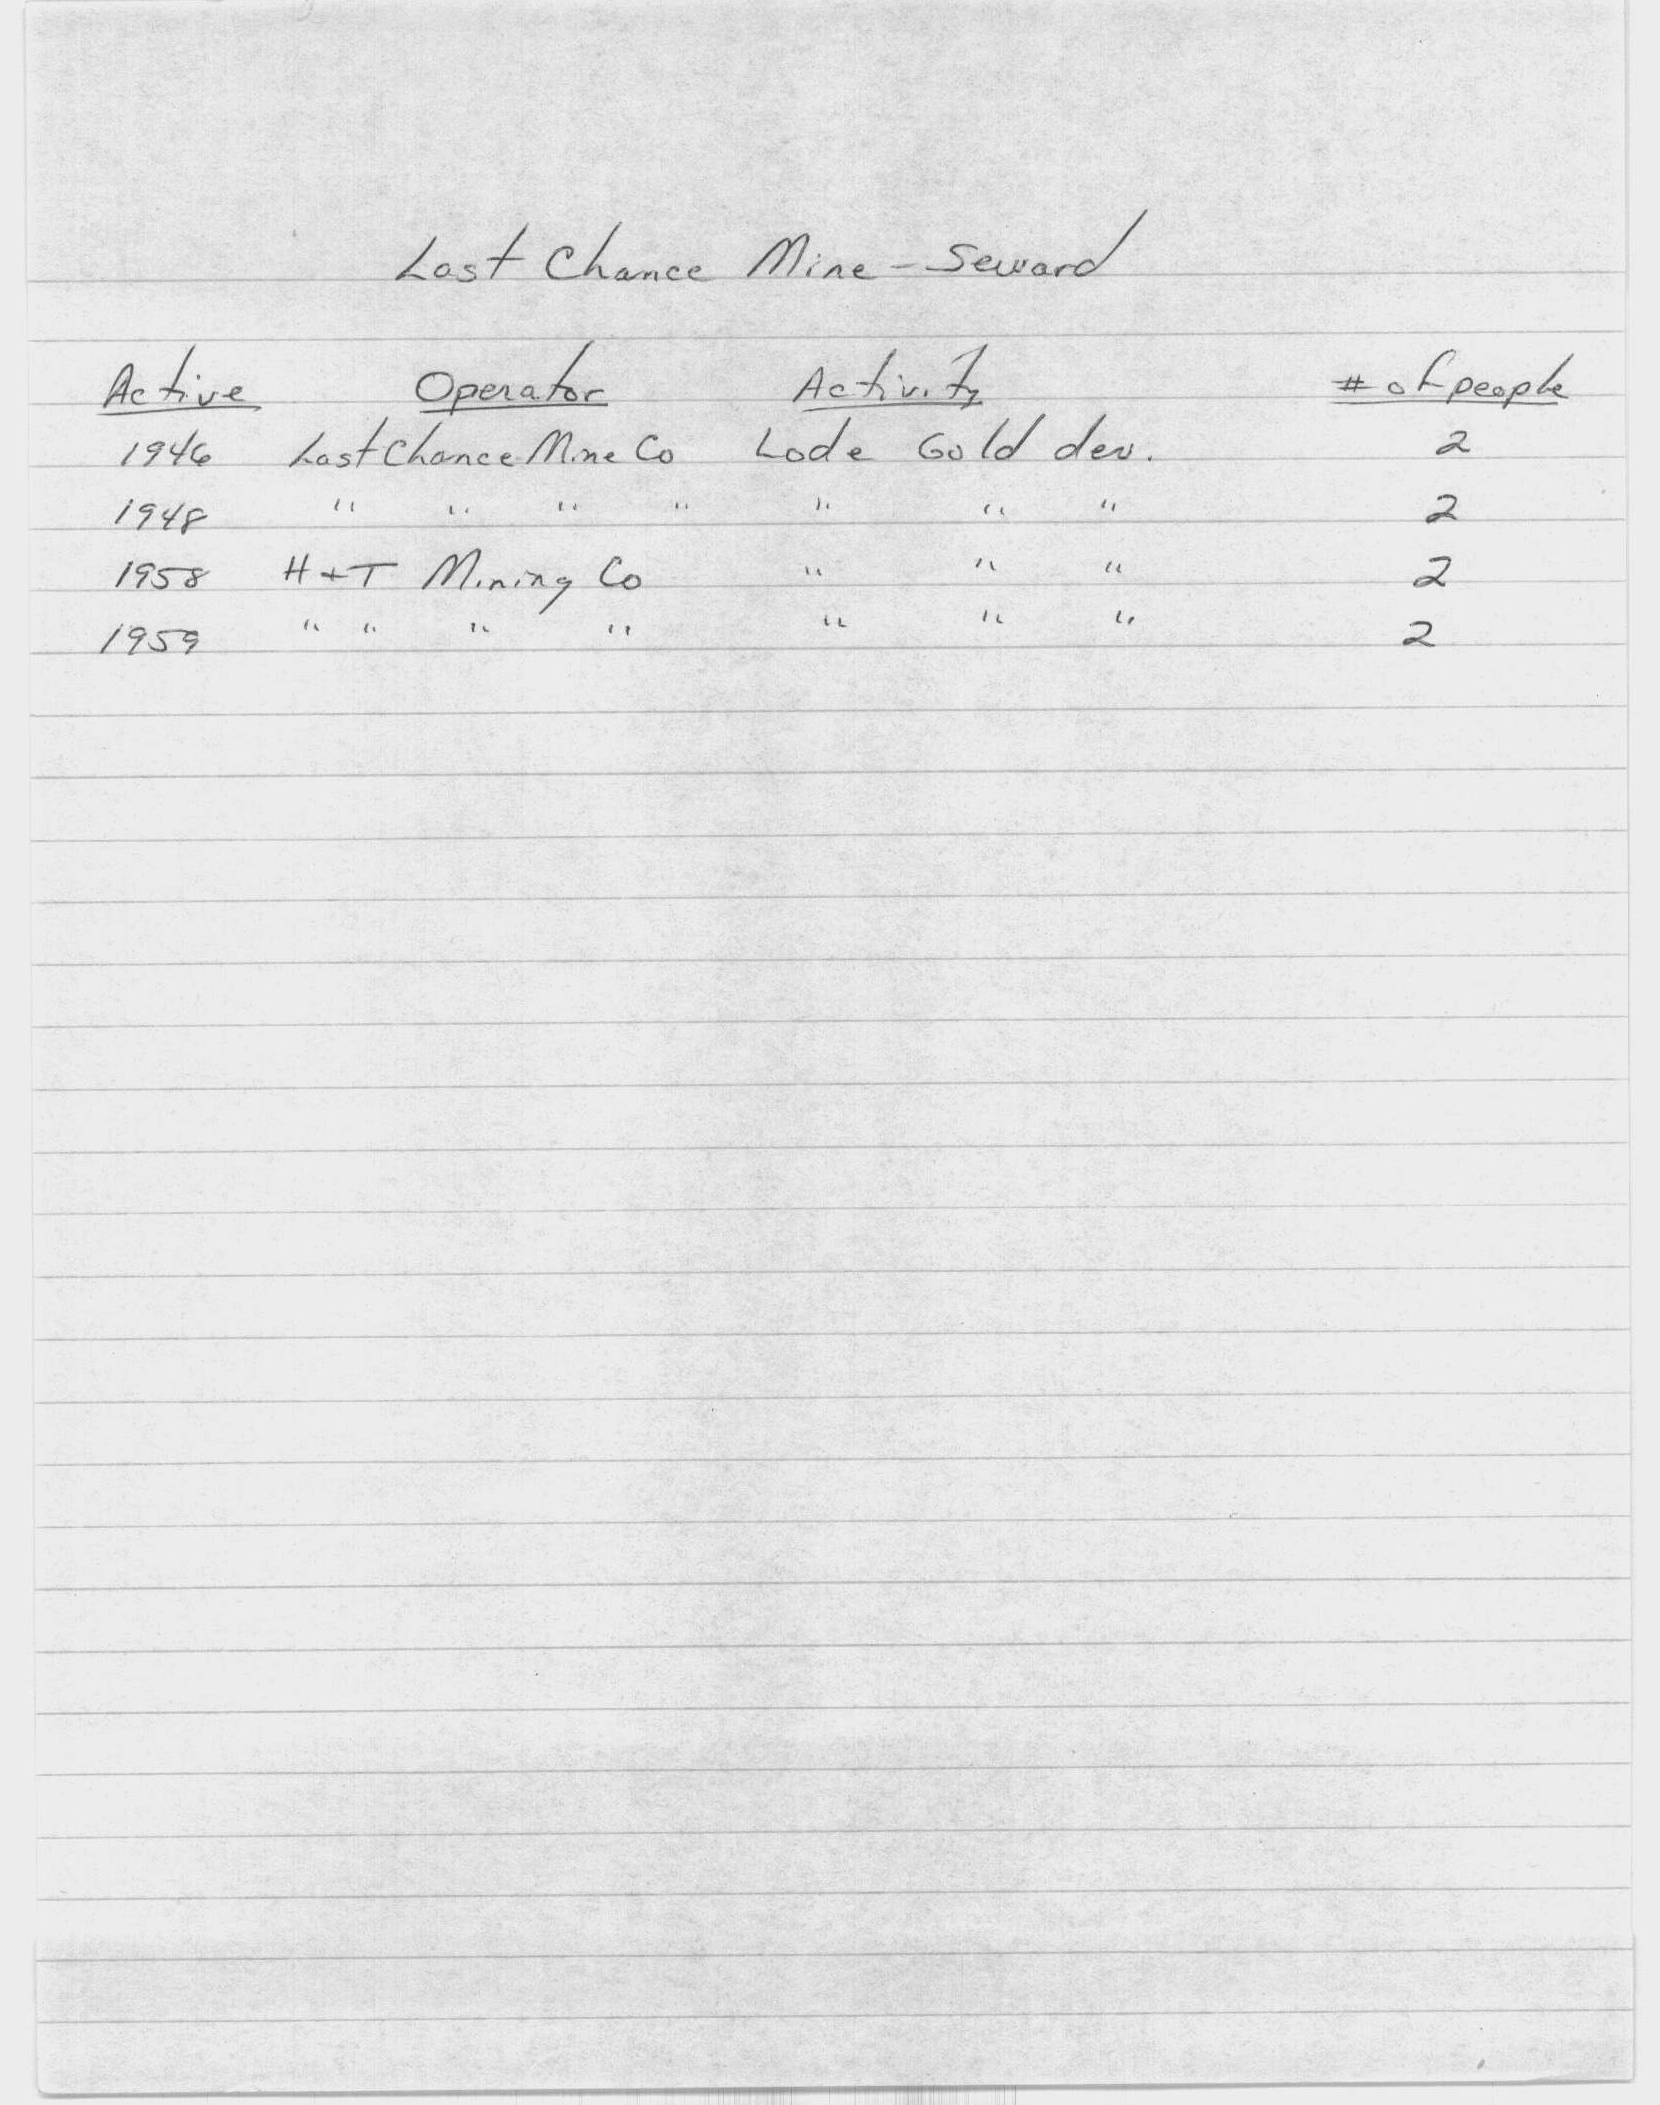 Last Chance Mine - Seward
Active Operator Activity # of people
1946 Last Chance Mine Co Lode Gold dev. 2
1948 " " " " " " " 2
1958 H+T Mining Co " " " 2
1959 " " " " " " " 2